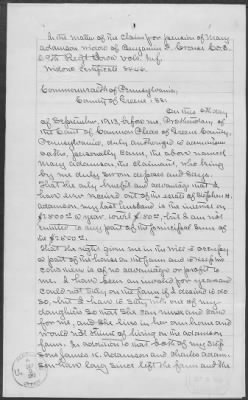 In the matter of the claim for pension of Mary
Adamson widow of Benjamin F. Cramer Co. E.
69th Regt Iowa Vols. Inf.
Widow's Certificate
Commonwealth of Pennsylvania,
County of Greene, ss:
On this 6th day
of September, 1913, before me Prothonotary of
the Court of Common Pleas of Greene County,
Pennsylvania, duly authorized to administer
oaths, personally came, the above named
Mary Adamson, the claimant, who being
by me duly sworn deposes and says:
That the only benefit and advantage that I
have ever received out of the estate of
Adamson my last husband is the interest on
a year but I am not
entitled to any part of the principal sum of
the
That the right given me in the will to occupy
a part of the house on the farm and to keep
a cow thereon is of no advantage or profit to
me. I have been an invalid for years and
could not stay on the farm if I desired to do
so, but I have to stay with one of my
daughters so that she can nurse and care
for me, and she lives in her own home and
would not think of living on the Adamson
farm. In addition to that both of my step
sons James K. Adamson and Charles Adam-
son have long since left the farm and the